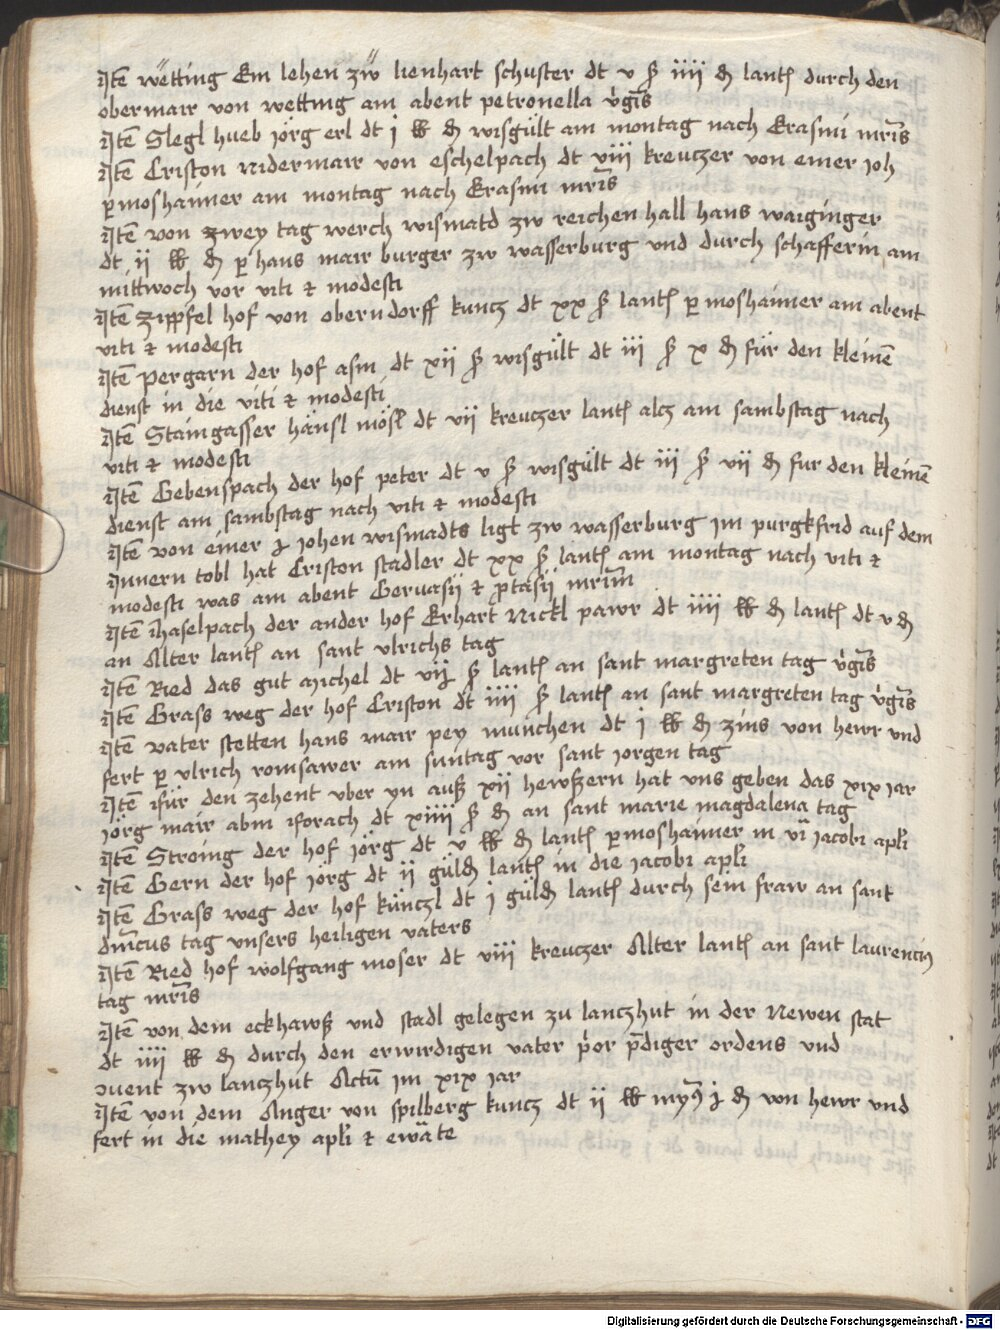 Itē wetting Ein lehen zw lienhart schuster dt v ß iiij ₰ lantß durch den
obermair von wetting am abent petronella v̓gīs
Itē Slegl hueb jörg erl dt j ℔ ₰ wisgült am montag nach Erasmi mr̄is
Itē Criston nidermair von eschelpach dt viij kreuczer von einer Joh
p moshaimer am montag nach Erasmi mr̄is
Itē von zwey tag werch wismatd zw reichenhall hans waiginger
dt ij ℔ ₰ p hans mair burger zw wasserburg vnd durch schafferin am
mittwoch vor viti & modesti
Itē zipfel hof von oberndorff kuncz dt xx ß lantß p moshaimer am abent
viti & modesti
Itē pergarn der hof asm dt xij ß wisgült dt iij ß x ₰ für den kleinē
dienst in die viti & modesti
Itē Staingasser hänsl mösl dt vij kreuczer lantß alcz am sambstag nach
viti & modesti
Itē Gebenspach der hof peter dt v ß wisgült dt iij ß vij ₰ fur den kleinē
dienst am sambstag nach viti & modesti
Itē von einer Johen wismadts ligt zw wasserburg im purgkfrid auf dem
Innern tobl hat Criston stadler dt xx ß lantß am montag nach viti &
modesti was am abent Geruasij & ptasij mrīm
Itē Haselpach der ander hof Erhart Nickl pawr dt iiij ℔ ₰ lantß dt v ₰
an Alter lantß an sant vlrichs tag
Itē Ried das gut michel dt vij ß lantß an sant margreten tag v̓gīs
Itē Grass weg der hof Criston dt iiij ß lantß an sant margreten tag v̓gīs
Itē vater stetten hans mair pey munichen dt j ℔ ₰ zins von hewr vnd
fert p vlrich romsawer am suntag vor sant jorgen tag
Itē für den zehent vber yn auß xij hewßern hat vns geben das xix jar
jörg mair abm forach dt xiiij ß ₰ an sant marie magdalena tag
Itē Stroing der hof jörg dt v ℔ ₰ lantß p moshaimer in vī jacobi apl̄i
Itē Gern der hof jörg dt ij güld̄ lantß in die jacobi apl̄i
Itē Grass weg der hof künczl dt j güld̄ lantß durch sein fraw an sant
dm̄icus tag vnsers heiligen vaters
Itē Ried hof wolfgang moser dt viij kreuczer Alter lantß an sant laurencij
tag mr̄is
Itē von dem eckhawß vnd stadl gelegen zu lanczhut in der Newen stat
dt iiij ℔ ₰ durch den erwirdigen vater pior p̄diger ordens vnd
ꝯuent zw lanczhut Actū im xix jar
Itē von dem Anger von spilberg kuncz dt ij ℔ myꝰ ₰ von hewr vnd
fert in die mathey apl̄i & ewāte
Digitalisierung gefördert durch die Deutsche Forschungsgemeinschaft - DFG